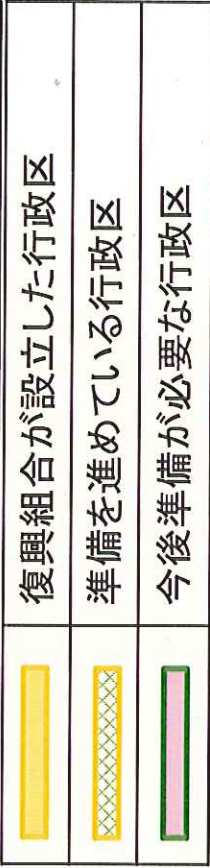 復興組合が設立した行政区
準備を進めている行政区
今後準備が必要な行政区